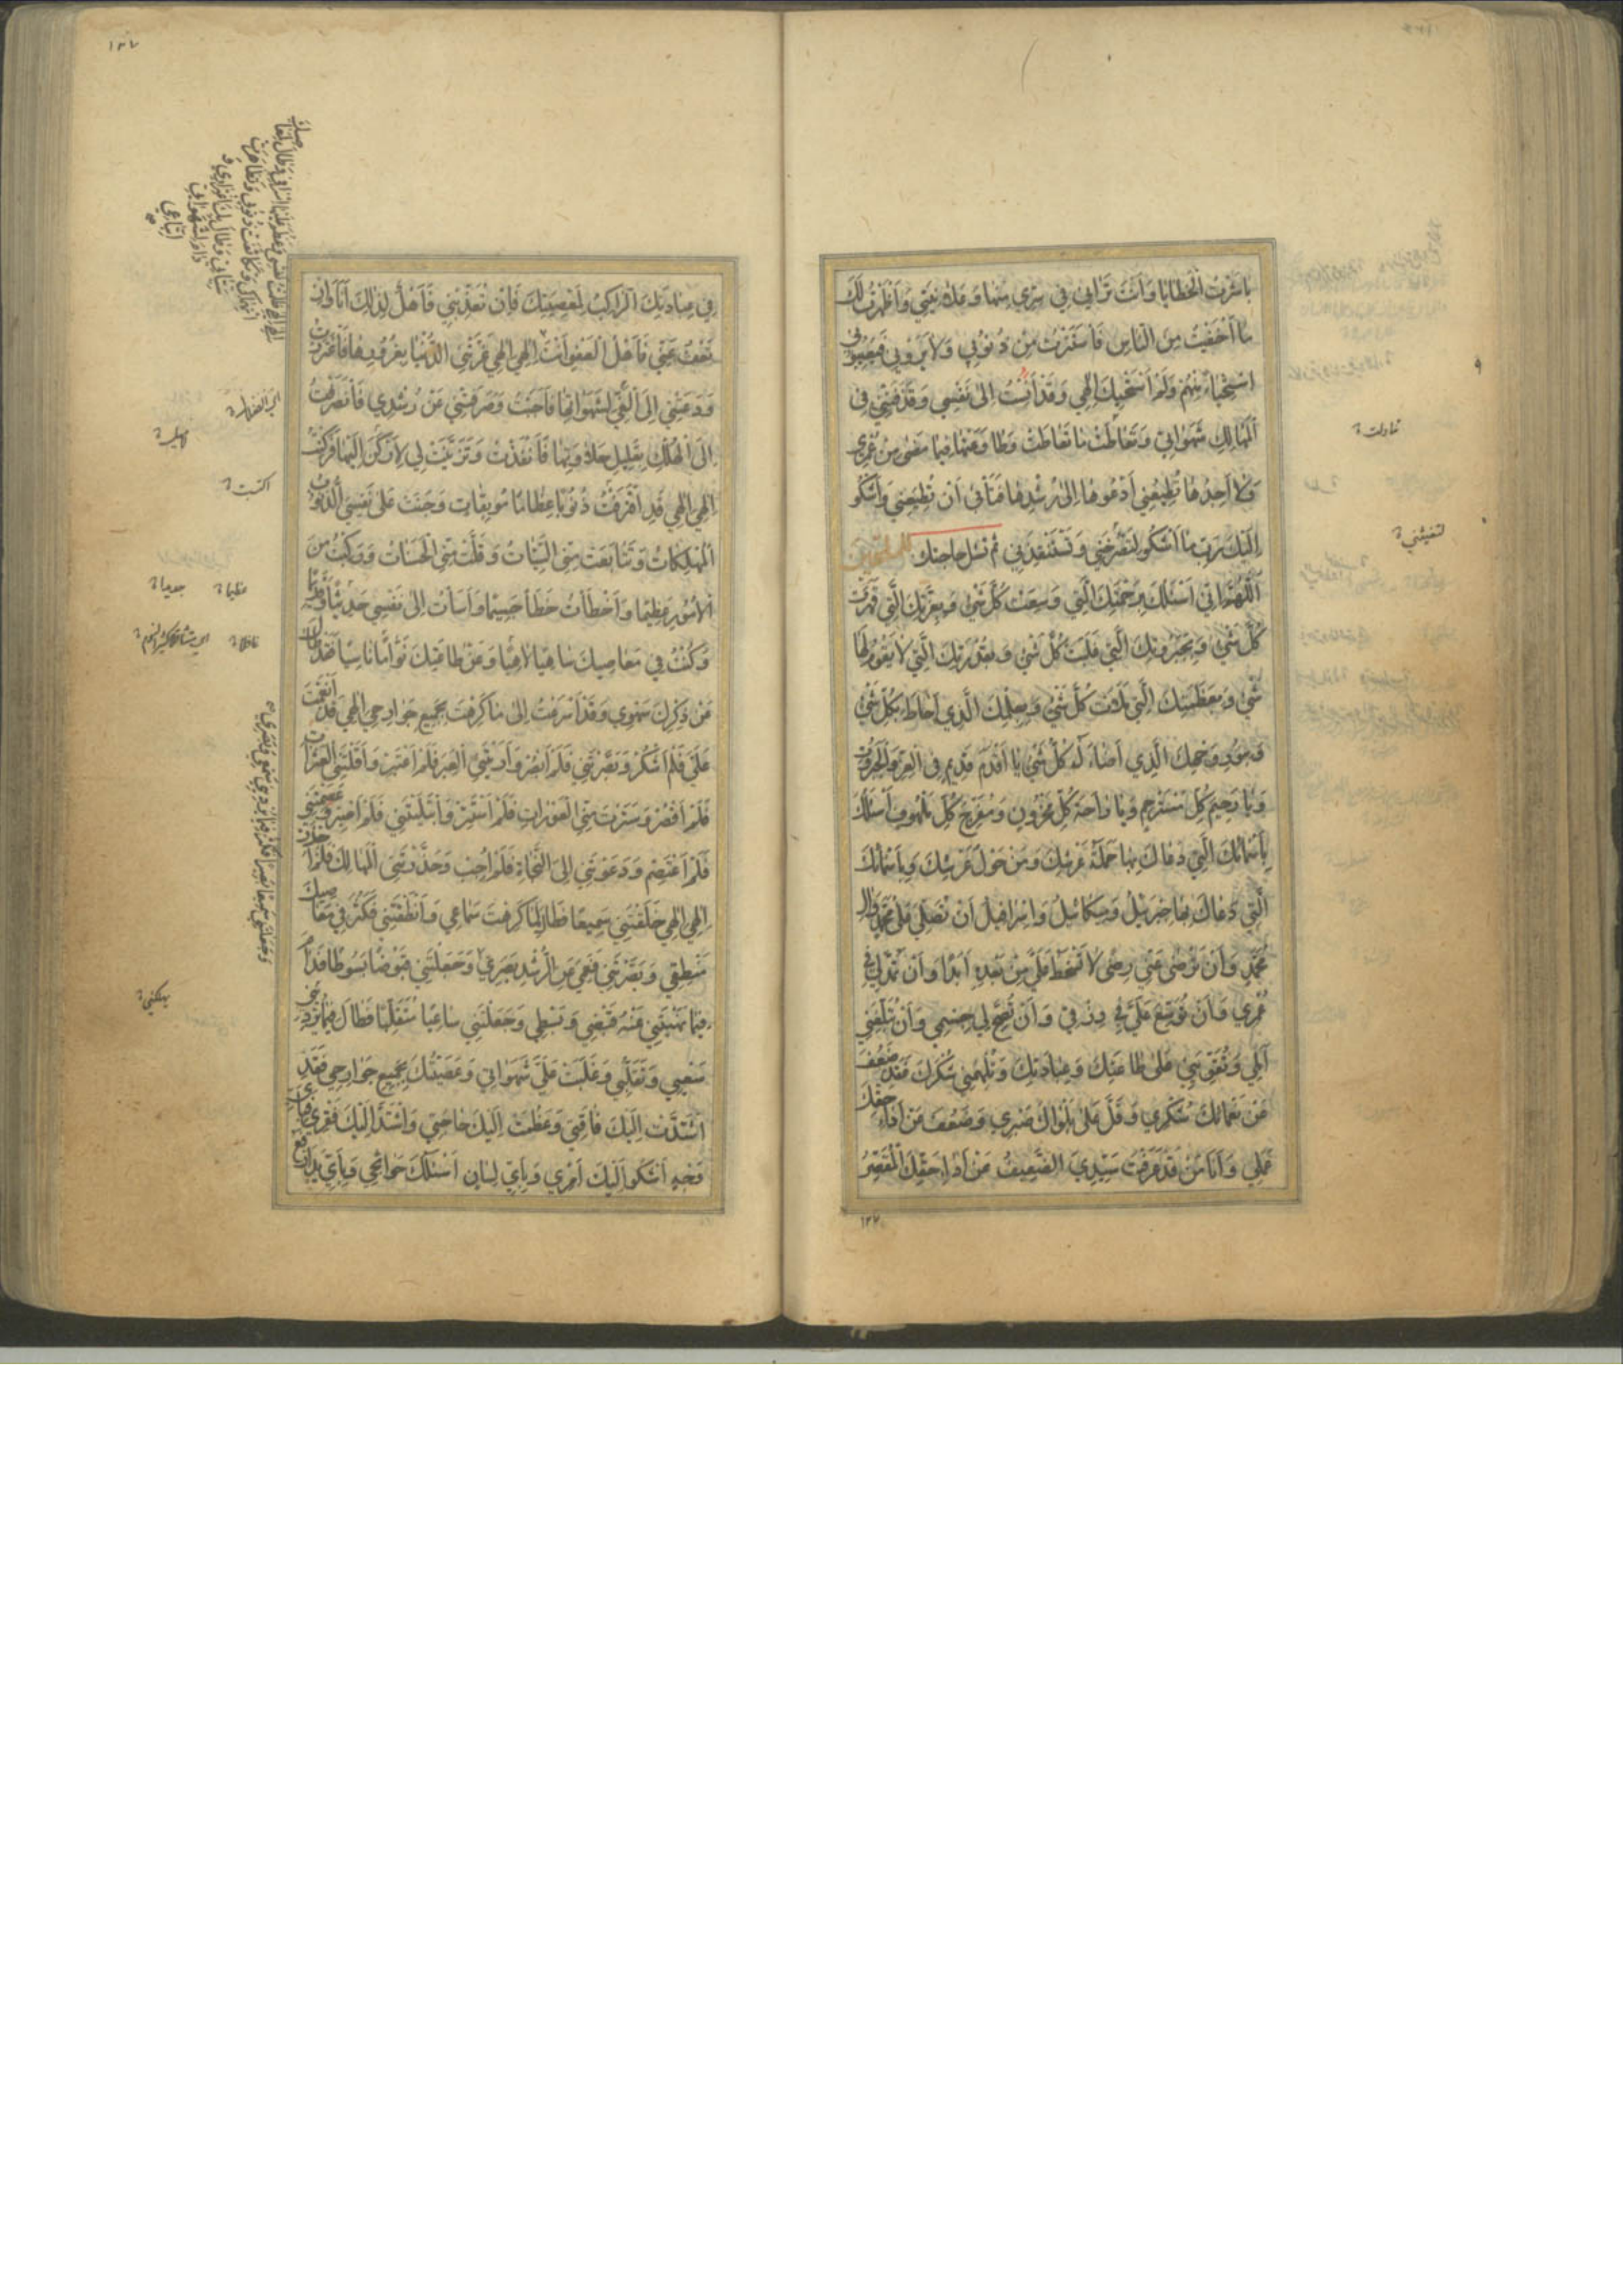 باشرت الخطايا وانت تراني في سري منها وعلانيتي واظهرت لك
ما اخفيت من الناس فاستترت من ذنوبي ولا يروني فيعيبوني
استحياء منهم ولم استحيك الهي وقد انست الى نفسي وقذفتني في
المهالك شهواتي وتعاطت ما تعاطت وطاوعتها فيما مضى من عمري
ولا اجدها تطيعني ادعوها الى رشدها فتابى ان تطيعني واشكو
اليك رب ما اشكو لتصرخني وتستنقذني ثم تسل حاجتك
اللهم اني اسئلك برحمتك التي وسعت كل شيء وبعزتك التي قهرت
كل شيء وبجبروتك التي غلبت كل شيء وبقدرتك التي لا يقوم لها
شيء وبعظمتك التي ملات كل شيء وبعلمك الذي احاط بكل شيء
وبنور وجهك الذي اضاء له كل شيء يا اقدم قديم في العز والجبروت
ويا رحيم كل مسترحم ويا راحة كل محزون ومفرج كل ملهوف اسئلك
باسمائك التي دعاك بها حملة عرشك ومن حول عرشك وباسمائك
التي دعاك بها جبرئيل وميكائيل واسرافيل ان تصلي على محمد وال
محمد وان ترضى عني رضى لا تسخط علي من بعده ابدا وان تمد لي في
عمري وان توسع علي في رزقي وان تصح لي جسمي وان تبلغني
املي وتقويني على طاعتك وعبادتك وتلهمني شكرك فقد ضعف
عن نعمائك شكري وقل على بلواك صبري وضعف عن اداء حقك
عملي وانا من قد عرفت سيدي الضعيف عن اداء حقك المقصر
تناولت
لتغيثني
١٢٧
١٣٧
في عبادتك الراكب لمعصيتك فان تعذبني فاهل لذلك انا وان
تعف عني فاهل العفو انت الهي الهي غرتني الدنيا بغرورها فاغتررت
ودعتني الى الغي لشهواتها فاجبت وصرفتني عن رشدي فانصرفت
الى الهلك بقليل حلاوتها فانقدت وتزينت لي لاركن اليها فركنت
الهي الهي قد اقترفت ذنوبا عظاما موبقات وجنت على نفسي الذنوب
المهلكات وتتابعت مني السيئات وقلت مني الحسنات وركبت من
الامور عظيما واخطات خطا جسيما واسات الى نفسي حديثا وقديما
وكنت في معاصيك ساهيا لاهيا وعن طاعتك نواما ناسيا فقد طال
عن ذكرك سهوي وقد اسرعت الى ما كرهت بجميع جوارحي الهي قد انعمت
علي فلم اشكر وبصرتني فلم ابصر واريتني العبر فلم اعتبر واقلتني العثرات
فلم اقصر وسترت مني العورات فلم استتر وابتليتني فلم اصبر وعصمتني
فلم اعتصم ودعوتني الى النجاة فلم اجب وحذرتني المهالك فلم احذر
الهي الهي خلقتني سميعا فطال لما كرهت سماعي وانطقتني فكثر في معاصيك
منطقي وبصرتني فعمي عن الرشد بصري وجعلتني قبوضا بسوطا فدام
فيما نهيتني عنه قبضي وبسطي وجعلتني ساعيا متقلبا فطال فيما يرديني
سعيي وتقلبي وغلبت علي شهواتي وعصيتك بجميع جوارحي فقد
اشتدت اليك فاقتي وعظمت اليك حاجتي واشتد اليك فقري فباي
وجه اشكو اليك امري وباي لسان اسئلك حوائجي وباي يد ارفع
اكتسبت
عظيما
جميعا
يهلكني